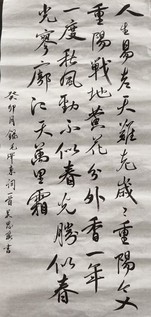 人生易老天难老歲々重陽今又
重陽戰地黄花分外香一年
一度秋風勁不似春光勝似春
光寥廓江天萬里霜
癸卯月錄毛澤東词